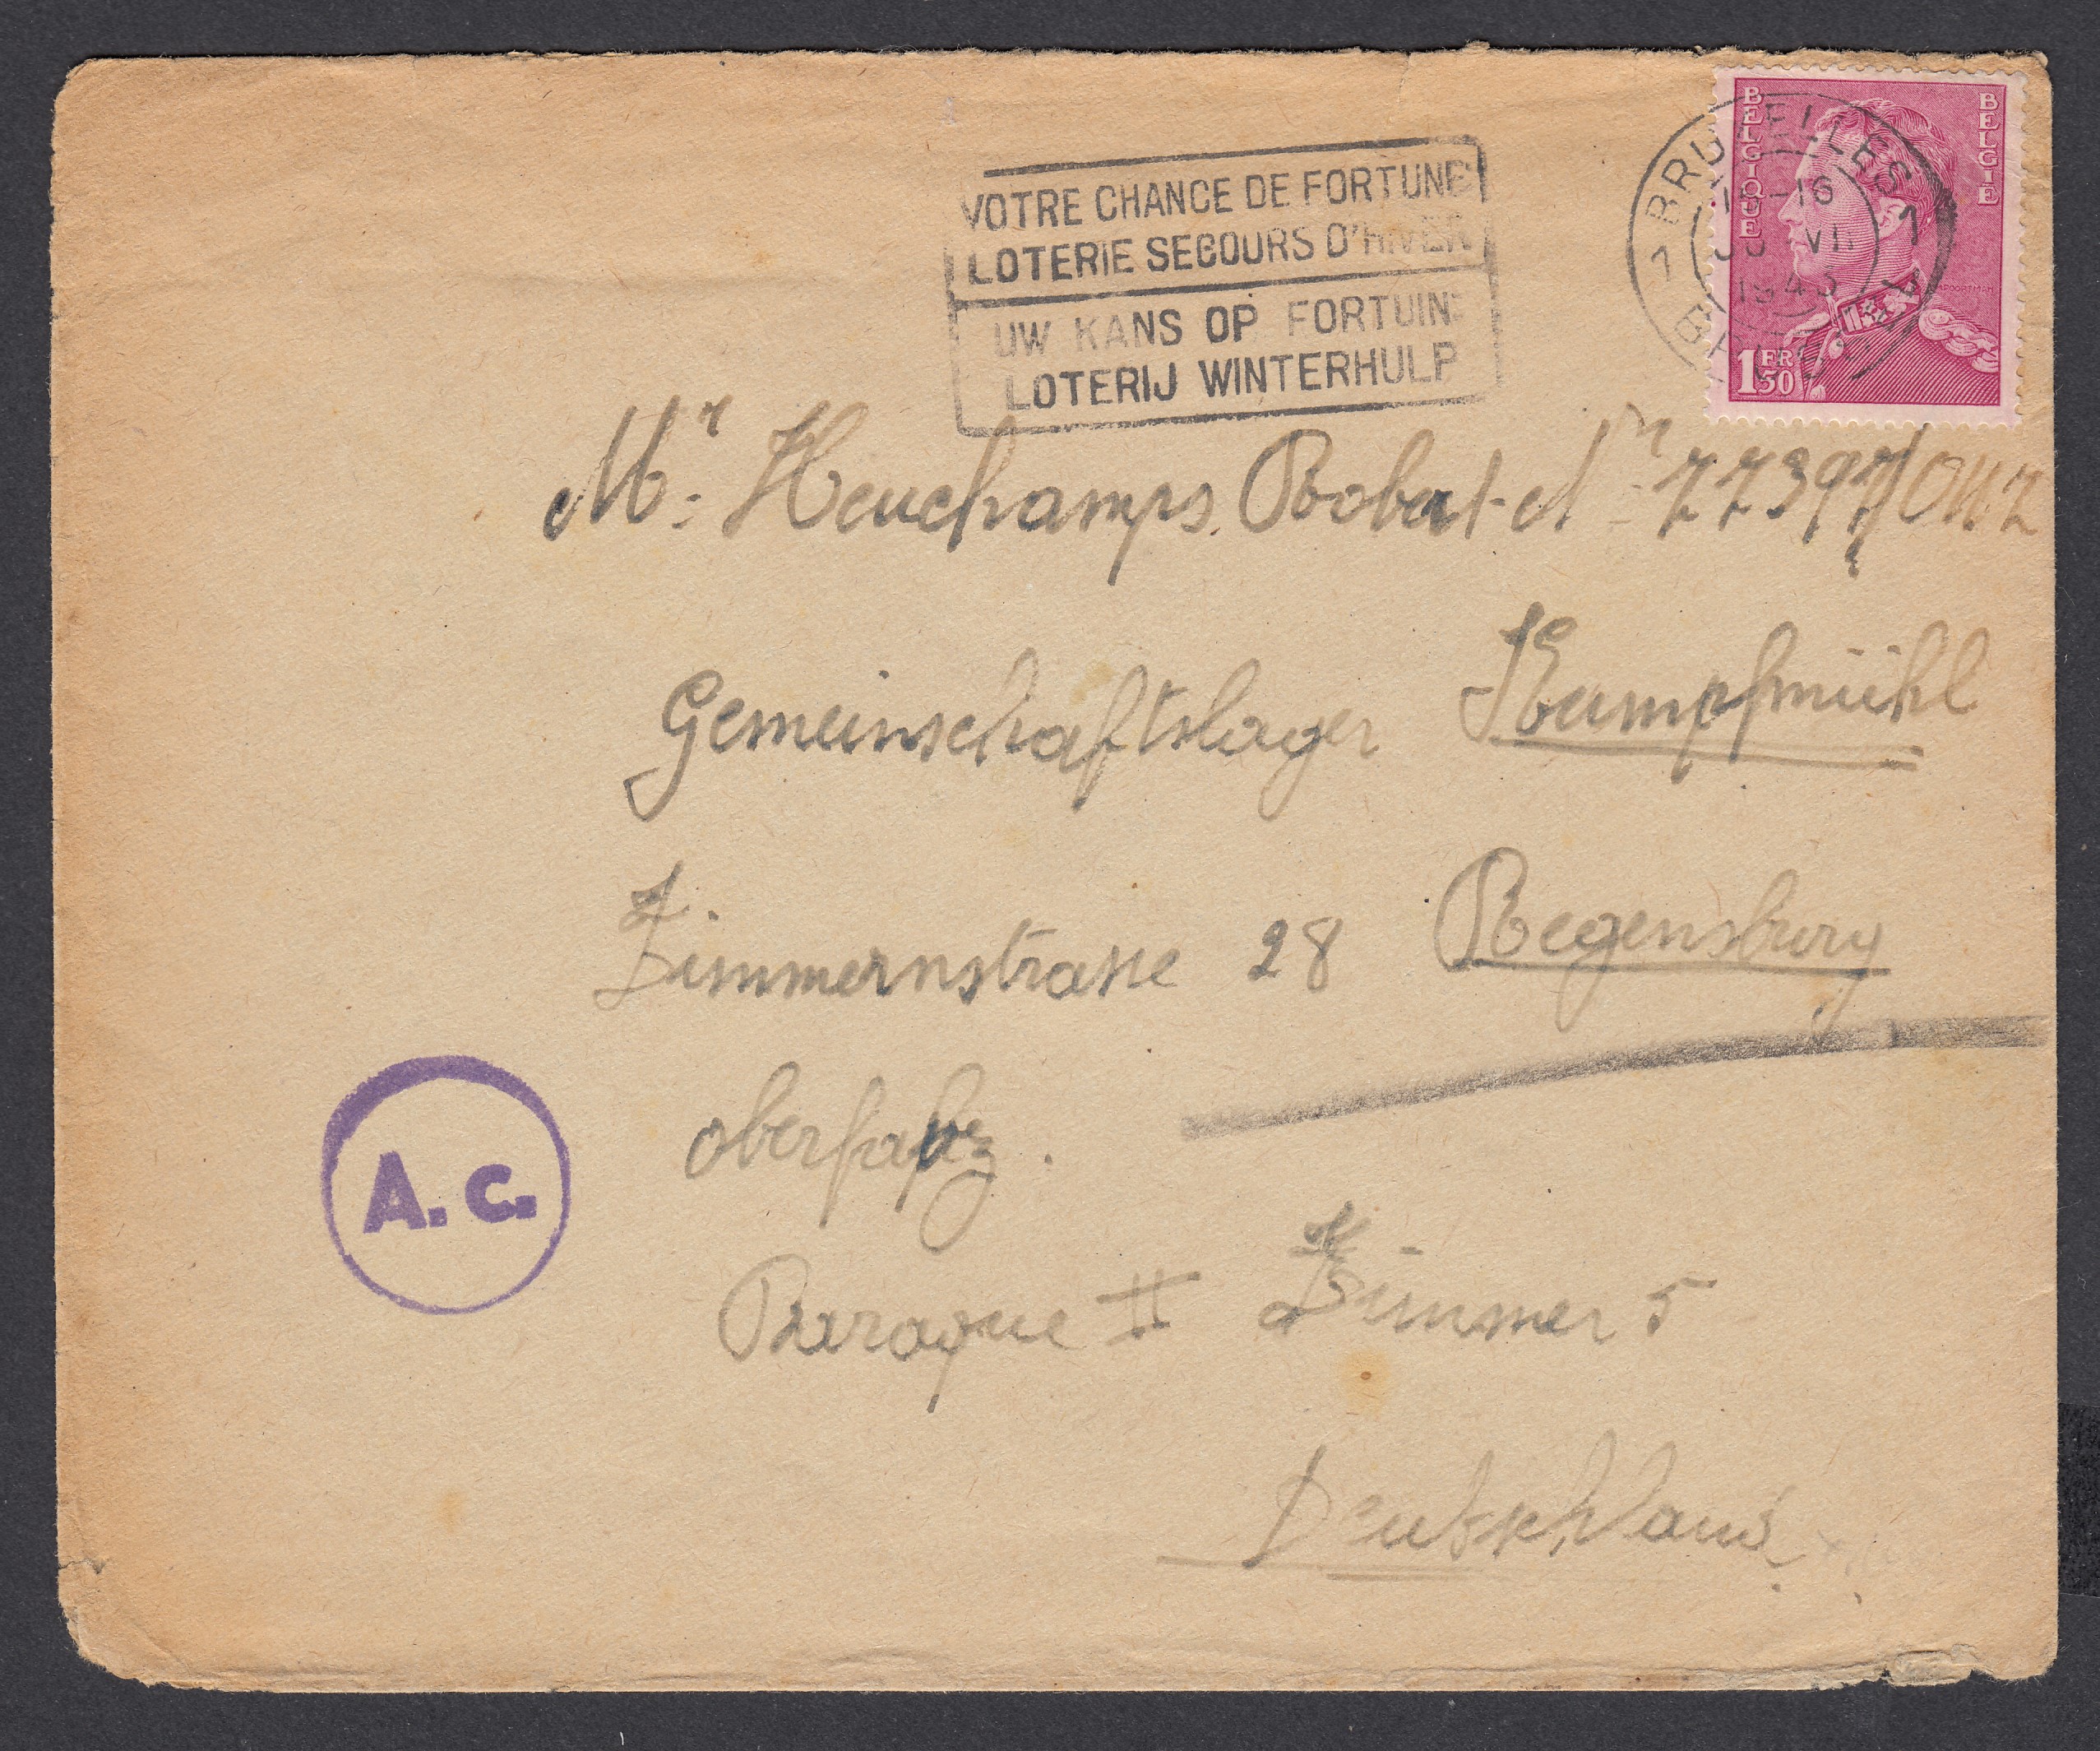 VOTRE CHANCE DE FORTUNE
LOTERIE SECOURS D'HIVER
UW KANS OP FORTUIN
LOTERIJ WINTERHULP
BELGIQUE
BELGIE
1 FR 50
POORTMAN
BRUXELLES
1 1
15-16
VII
1943
BRUSSEL
Mr. Heuchamps Robert Nr 77397/
Gemeinschaftslager Kumpfmühl
Zimmernstrasse 28 Regensburg
oberpfalz.
Baraque II Zimmer 5
Deutschland
A.c.